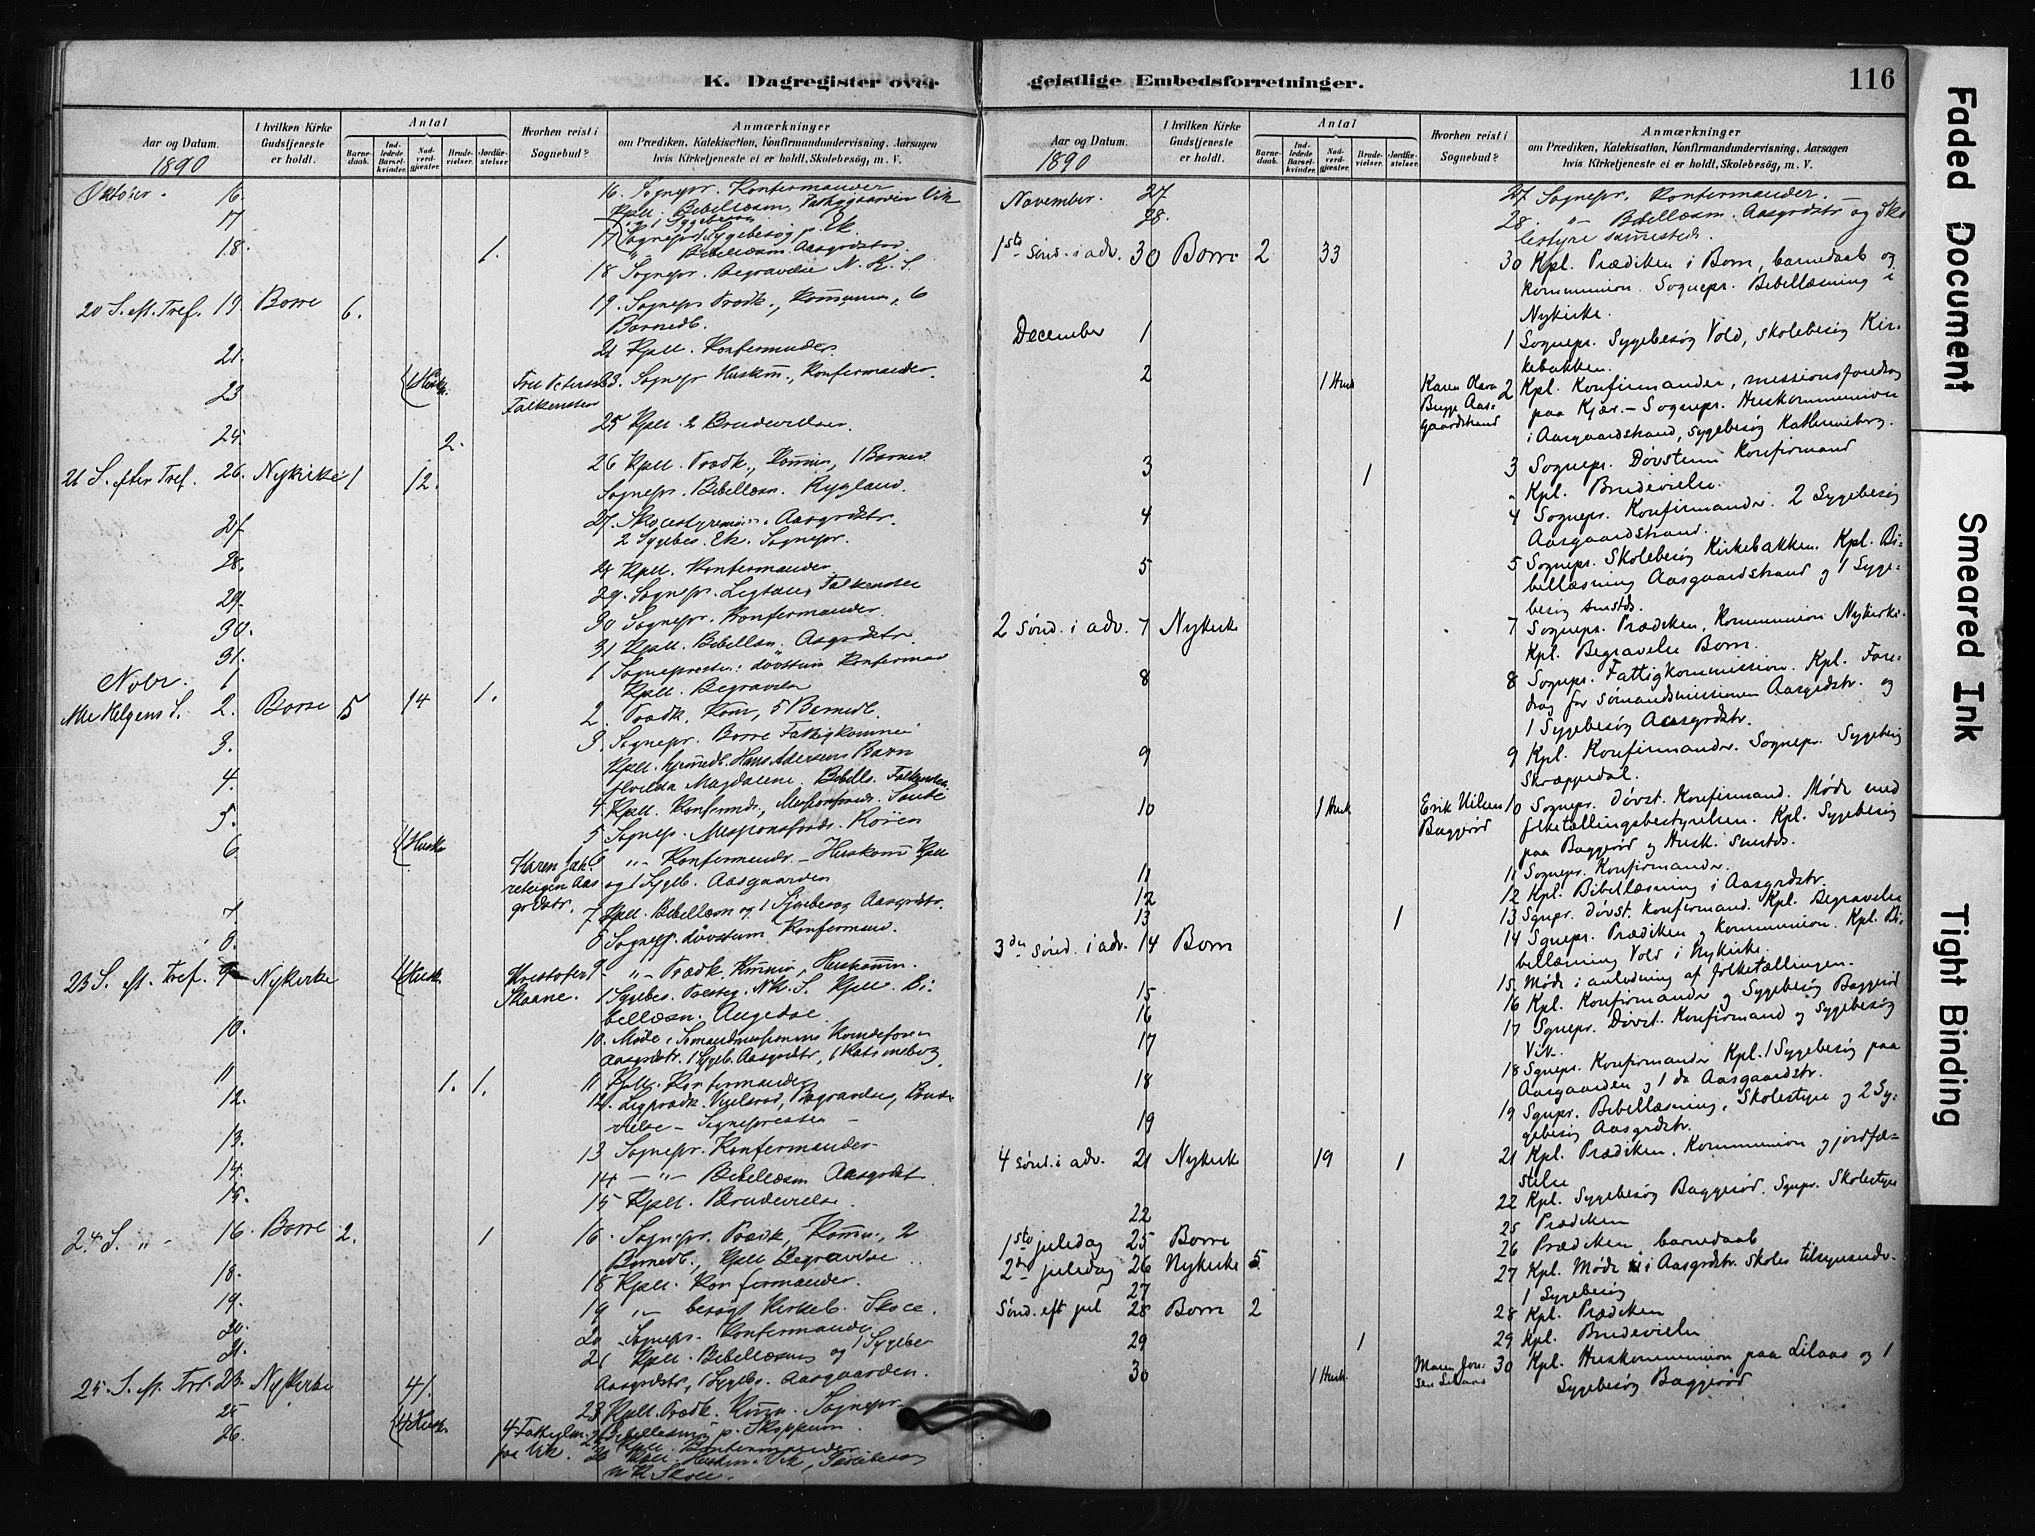 K. Dagregister over geistlige Embedsforretninger.
116
Aar og Datum.
1890
I hvilken Kirke Gudstjeneste er holdt.
Antal
Barnedaab.
Indledede Barselkvinder.
Nadverdgjester.
Brudevielser.
Jordfæstelser.
Hvorhen reist i Sognebud?
Anmærkninger
om Prædiken, Katekisation, Konfirmandundervisning, Aarsagen
hvis Kirketjeneste ei er holdt, Skolebesög, m. V.
Oktober. 16. 16. Sognepr. Konfermander
Kpll. Bibellæsn. Fattiggaarden Vik
17 17 Sognepr. 1 Sygebesög p. Ek.
Bibellæsn. Aasgrdstrd.
18. 1. 18 Sognepr. Begravelse N. K. S.
20 S. eft. Tref. 19. Borre 6. 19. Sognepr. Prædk., Kommunion, 6
Barnedb.
21. 21 Kpll. Konfermander.
23 1 Husk. Falkensten 23. Sognepr. Huskom., Konfermander.
25. 2. 25 Kpll. 2 Brudevielser.
21 S. efter Tref. 26. Nykirke 1 12. 26 Kpll. Prædk., Kommun., 1 Barned.
Sognepr. Bibellæsn. Rygland.
27. 27. Skolestyremøde. Aasgrdstr.
2 Sygebes. Ek. Sognepr.
28. 28 Kpll. Konfermander.
29. 29. Sognepr. Falkensten
30. 30 Sognepr. Konfermander.
31. 31 Kpll. Bibellæsn. Aasgrdstr.
Novbr. 1 1 Sognepresten: døvstum Konfermand
Kpll. Begravelse
Alle Helgens S. 2. Borre 5 14 1. 2. Prædk. Kom., 5 Barnedb.
3. 3 Sognepr. Borre Fattigkommis.
Kpll. hjemmedb. Hans Andersens Barn
Hvilda Magdalene. Bibell. Falkensten.
4. 4 Kpll. Konfermdr., Missionsfordr.
5. 5 Sognep. Missionsfordr.
6 1 Husk. Karen Aasgrdstr. 6 " Konfermandr. - Huskom. Kpll.
og 1 Sygeb. Aasgaarden
7 7 Kpll. Bibellæsn og 1 Sygebesög Aasgrdstr.
8. 8 Sognepr. døvstum Konfermand.
23 S. eft. Tref. 9 Nykirke 1 Husk. Kristofer Skaane. 9 - " - Prædk. Kommun., Huskomm.
1 Sygebes. N. K. S. Kpll. Bi-
bellæsn. Augedal.
10. 10. Møde i Sømandsmissionens Kvindeforen.
Aasgrdstr. 1 Sygeb. Aasgrdstr.,
11 1. 1. 11 Kpll. Konfermander
12. 12. Ligprædk. Begravelse, Brude-
vielse - Sognepresten -
13. 13 Sognepr. Konfermander
14. 14 - " - Bibellæsn. Aasgrdstr.
15. 15 Kpll. Brudevielse
24 S. " - 16. Borre 2. 1 16. Sognepr. Prædk., Komm., 2
Barnedb., Kpll. Begravelse
18. 18 Kpll. Konfermander.
19. 19 " - besögt Kirkeb. Skole.
20. 20 Sognepr. Konfermander
21. 21 Kpll. Bibellæsning og 1 Sygebes.
Aasgrdstr., 1 Sygebs. Aasgaarden.
25. S. eft. Tref. 23. Nykirke 41. 23 Kpll. Prædk. Komm. Sognepr.
Bibellæsning p. Skoppum.
25 4 Husk. 4 Fattiglem. paa Vik. 25 Kpll. Konfermander
26. 26 Kpll. Huskom. Vik, Skolebesög
N. K. Skole.
Aar og Datum.
1890
I hvilken Kirke Gudstjeneste er holdt.
Antal
Barnedaab.
Indledede Barselkvinder.
Nadverdgjester.
Brudevielser.
Jordfæstelser.
Hvorhen reist i Sognebud?
Anmærkninger
om Prædiken, Katekisation, Konfirmandundervisning, Aarsagen
hvis Kirketjeneste ei er holdt, Skolebesög, m. V.
November. 27 27 Sognepr. Konfermander.
28. 28. " Bibellæsn. Aasgrdstr og Sko
lestyre sammesteds.
1ste Sønd. i adv. 30 Borre 2 33 30 Kpl. Prædiken i Borre, barnedaab og
kommunion. Sognepr. Bibellæsning i
Nykirke.
December 1 1 Sognepr. Sygebesög Vold, skolebesög Kir-
kebakken.
2 1 Husk Karen Olava Bugge Aas- gaardstrand 2 Kpl. Konfirmander, missionsforedrag
paa Kjær. - Sognepr. Huskommunion
i Aasgaardstrand, sygebesög Kathrineborg.
3 1 3 Sognepr. Døvstum Konfirmand
Kpl. Brudevielse.
4 4 Sognepr. Konfirmander. 2 Sygebesög
Aasgaardstrand.
5 5 Sognepr. Skolebesög Kirkebakken. Kpl. Bi-
bellæsning Aasgaardstrand og 1 Syge-
besög smstds.
2 Sønd. i adv. 7 Nykirke 7 Sognepr. Prædiken, Kommunion Nykirke.
Kpl. Begravelse Borre.
8 8 Sognepr. Fattigkommission. Kpl. Fore-
drag for Sømandsmissionen Aasgrdstr. og
1 Sygebesög Aasgrdstr.
9 9 Kpl. Konfirmander. Sognepr. Sygebesög
Skræppedal.
10 1 Husk Erik Nilsen Baggerød 10 Sognepr. Døvst. Konfirmand. Møde med
folketællingsbestyrelsen. Kpl. Sygebesög
paa Baggerød og Husk. smstds.
11 11 Sognepr. Konfirmander.
12 12 Kpl. Bibellæsning i Aasgrdstr.
13 1 13 Sgnpr. Døvst. Konfirmand. Kpl. Begravelse
3die Sønd. i adv. 14 Borre 14 Sgnepr. Prædiken og Kommunion. Kpl. Bi-
bellæsning Vold i Nykirke.
15 15 Møde i anledning af folketællingen.
16 16 Kpl. Konfirmander og Sygebesög Baggerød
17 17 Sgnepr. Døvst. Konfirmand og Sygebesög
Vik.
18 18 Sgnepr. Konfirmander Kpl. 1 Sygebesög paa
Aasgaarden og 1 do Aasgaardstr.
19 19 Sgnpr. Bibellæsning, Skolestyre og 2 Sy-
gebesög Aasgrdstr.
4 sønd. i adv. 21 Nykirke 19 1 21 Kpl. Prædiken, Kommunion og jordfæ-
stelse
22 22 Kpl. Sygebesög Baggerød. Sgnpr. Skolestyre
1ste juledag 25 Borre 25 Prædiken
2den juledag 26 Nykirke 5 26 Prædiken, barnedaab
27 27 Kpl. Møde i Aasgrdstr. Skoles tilsynsudv.
1 Sygebesög
Sønd. eft jul 28 Borre 2 28 Kpl. Prædiken
29 1 29 Kpl. Brudevielse
30 1 Husk. Maren Jon- sen Lilaas 30 Kpl. Huskommunion paa Lilaas og 1
Sygebesög Baggerød
Faded Document
Smeared Ink
Tight Binding